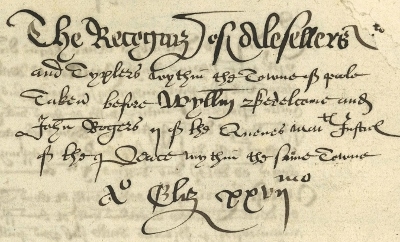 The Recogniz of Alesellers
and Typlers wythin the Towne of poole
Taken before Wyllm Bedelcome and
John Rogers ij of the Quenes Matie Justic
of the Peace wythin the same Towne
Ao Eliz xxviimo